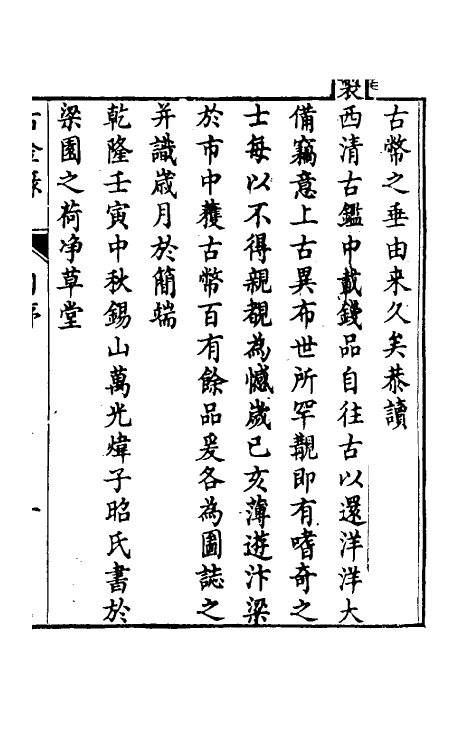 古幣之垂由来久矣恭讀
製西清古鑑中載錢品自往古以還洋洋大
備竊意上古異布世所罕覯即有嗜奇之
士每以不得親覩為憾歲己亥薄遊汴梁
於市中獲古幣百有餘品爰各為圖誌之
并識歲月於簡端
乾隆壬寅中秋錫山萬光煒子昭氏書於
梁園之荷净草堂
古金錄
一